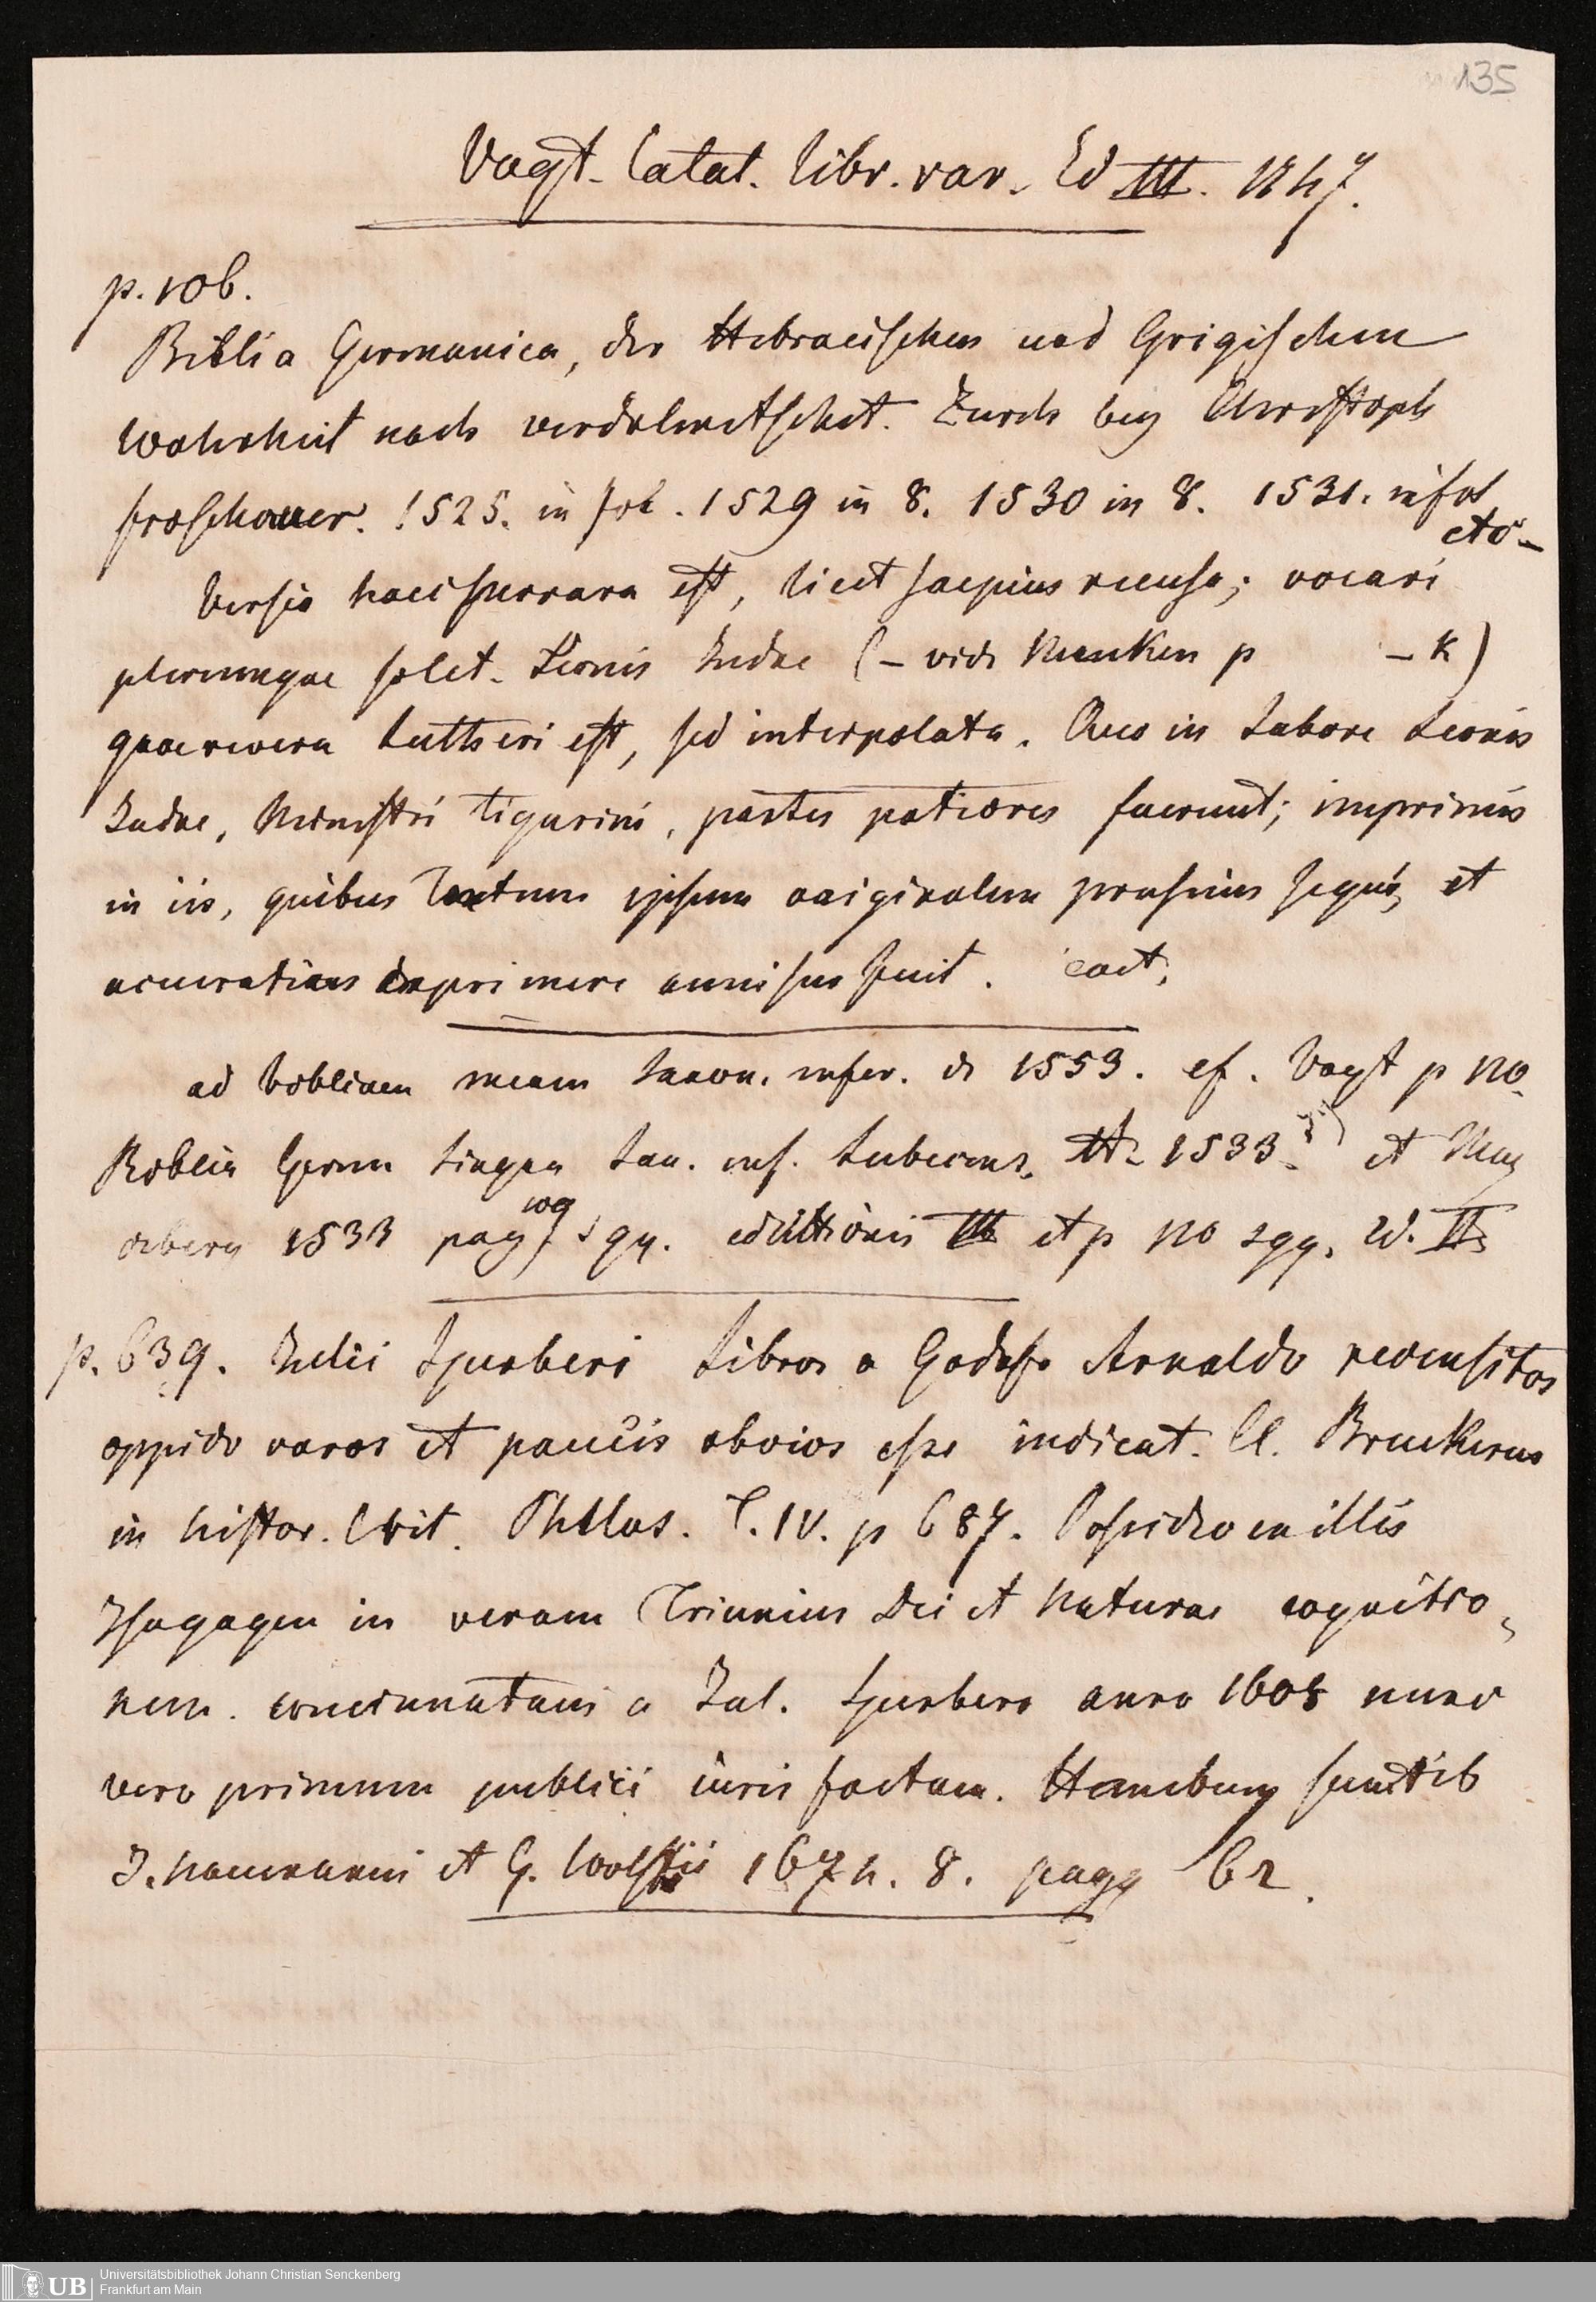 135
Vogt. Catal. libr. rar. Ed III. 1747.
p. 106.
Biblia Germanica, der Hebraeischen und Grigischen
Wahrheit nach verdolmetschet. Zurch bey Christoph
froschauer. 1525. in fol. 1529 in 8. 1530 in 8. 1531. in fol
etc
Versio haec perrara est, licet saepius recusa; vocari
plerumque solet Leonis Judae (– vide p – K)
quae revera Lutheri est, sed interpolata. Quo in labore Leonis
Judae, Ministri Tigurini, partes potiores fuerunt; imprimis
in iis, quibus Textum ipsum originalem pressius sequi, et
accuratius exprimere annisus fuit. caet.
ad bibliam meam Saxon. infer. de 1553. cf. Vogt p 110
Biblia Germ lingua Sax. inf. Lubecens. 1533 et Mag
deberg 1533 pag 109 sqq. edittionis III et p 110 sqq. Ed. II
p. 639. Julii Sperberi Libros a Godofr Arnoldo recensitos
oppido raros et paucis obvios esse indicat Cl. Bruckerus
in histor. Crit. Philos. T. IV. p 687. Possideo ex illis
Isagogen in veram Triunius Dei et Naturae cognitio
nem. concinnatam a Jul. Sperbero anno 1608 nunc
vero primum publici iuris factam. Hamburg sumtib
J. Naumanni et G. Wolffii 1674. 8. pagg 62.
Universitätsbibliothek Johann Christian Senckenberg
UB
Frankfurt am Main